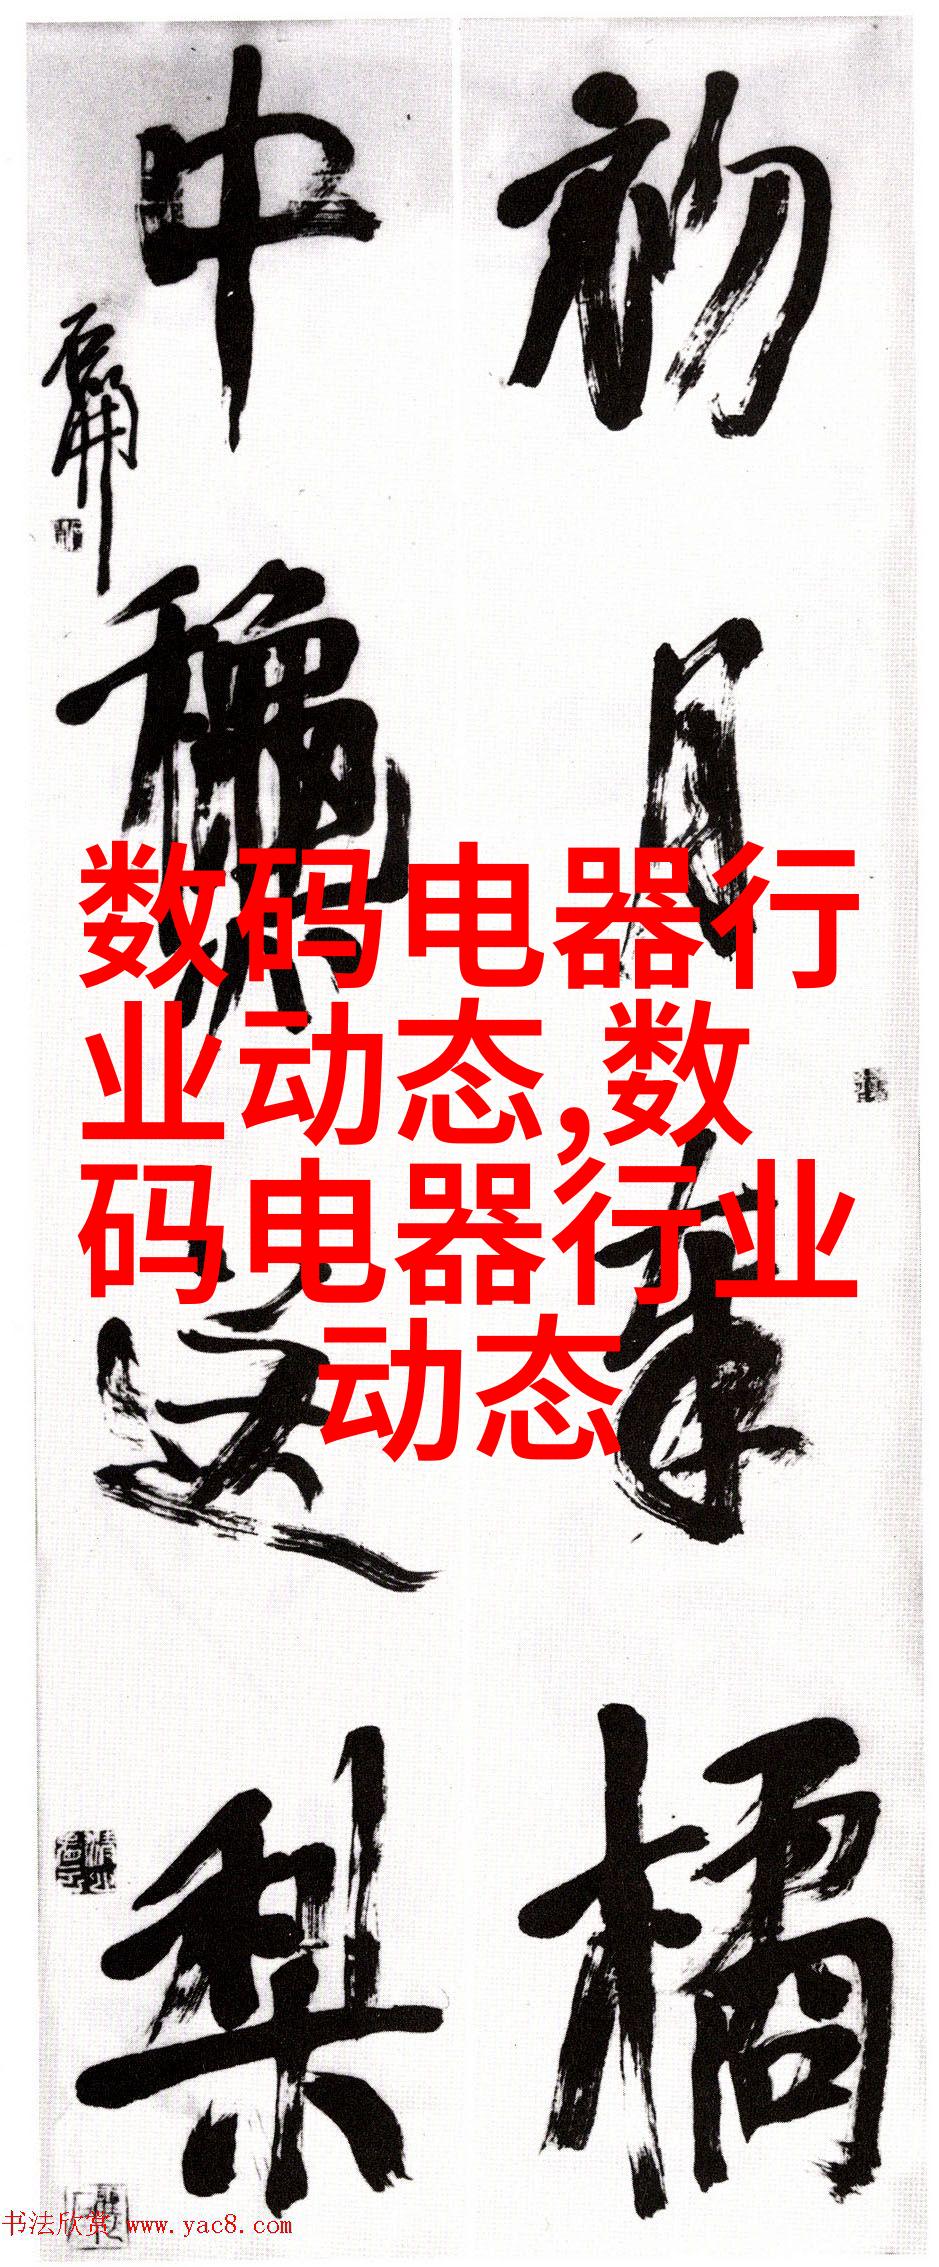 初月橘
中梨
数码电器行
业动态,数
码电器行业
动态
书法欣赏 www.yac8.com